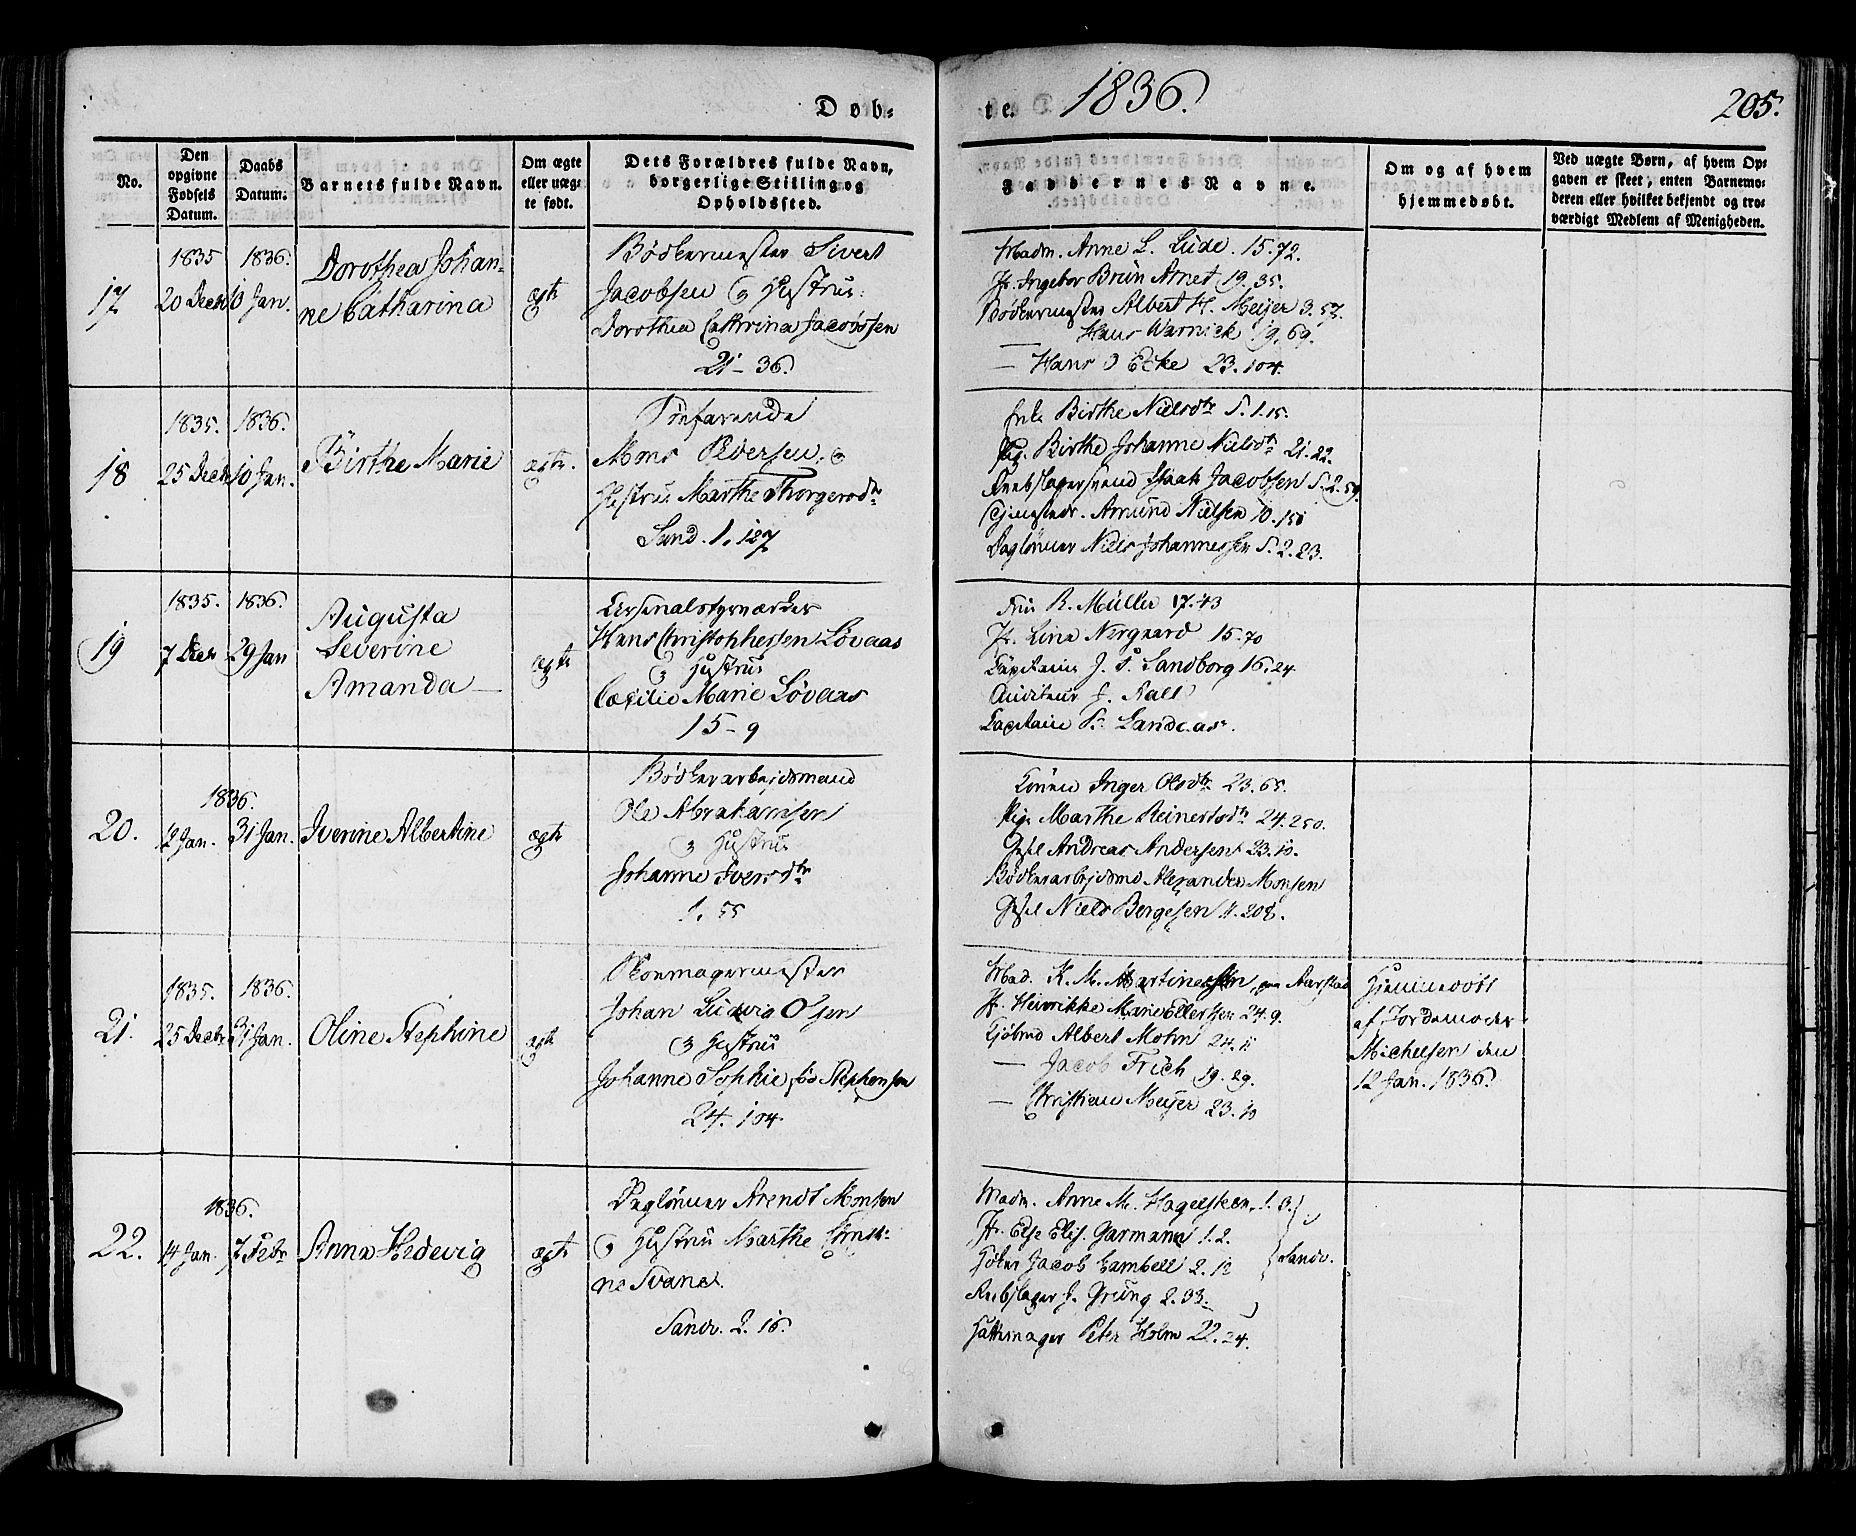 Døb-
te. 1836.
205.
No.
Den opgivne Fødsels Datum.
Daabs Datum.
Barnets fulde Navn.
Om ægte eller uægte født.
Dets Forældres fulde Navn, borgerlige Stilling og Opholdssted.
Faddernes Navne.
Om og af hvem hjemmedøbt.
Ved uægte Børn, af hvem Opgaven er skeet, enten Barnemoderen eller hvilket bekjendt og troværdigt Medlem af Menigheden.
17
1835
20 Decbr
1836.
10 Jan.
Dorothea Johan-
ne Catharina
ægte
Bødkermester Sivert
Jacobsen og Hustru:
Dorothea Cathrina Jacobsen
21-36.
Madm. Anne L. Lude. 15.72.
Jf. Ingebor Brun Arnet 19.35.
Bødkermester Albert H. Meijer 3.57.
Hans Warnick 19.69.
— Hans J Ecke 23.104.
18
1835.
25 Decbr
1836.
10 Jan.
Birthe Marie
ægte.
Søefarende
Mons Pedersen og
Hustru Marthe Thorgersdtr
Sand. 1.127
Birthe Nielsdtr S.1.15.
Pig. Birthe Johanne Nielsdtr 21.22.
Rebslagersvend Isaak Jacobsen S.2.59.
Tjenestedr. Amund Nielsen 10.151
Dagløner Niels Johannessen S.2.23.
19
1835.
7 Decr
1836.
29 Jan
Augusta
Severine
Amanda —
ægte
Hans Christophersen Løvaas
og Hustru
Cæcilie Marie Løvaas
15-9
Fru R. Müller 17.43
Jf. Lina Nergaard 15.70
Capitain J. S. Sandborg 16.24
Auditeur J.
Capitain
20.
1836.
12 Jan.
31 Jan.
Iverine Albertine
ægte
Bødkerarbejdsmand
Ole Abrahamsen
og Hustru
Johanne Iversdtr
1.55
Konen Inger Olsdtr 23.65.
Pige Marthe Reinertsdtr 24.250.
Andreas Andersen 23.10.
Bødkerarbejdsmd Alexander Monsen
Niels Børgesen 11.208.
21.
1835.
25 Decbr
1836.
31 Jan.
Oline Stephine
ægte
Skoemagermester
Johan Ludvig Olsen
og Hustru
Johanne Sophie, fød Stephensen
24.104.
Mad. K. M. Martinessen, paa Aarstad
Jf. Heinrikke Marie Ellertsen 24.9.
Kjøbmd Albert Mohn 24.11
— Jacob Frich 19.29.
— Christian Meijer 23.10
Hjemmedøbt
af Jordemoder
Michelsen den
12 Jan. 1836.
22.
1836.
14 Jan.
7 Febr
Anna Hedevig
ægte
Dagløner Arendt Monsen
og Hustru Marthe Christi-
ne Svane.
Sandv. 2.16.
Madm. Anne M. Hagelsteen, 1.3.
Jf. Else Elis. Garmann 1.2.
Jacob Gambell 2.12
Sandv.
Rebslager J. Grung 2.33.
Hattemager Peter Holm 22.24.